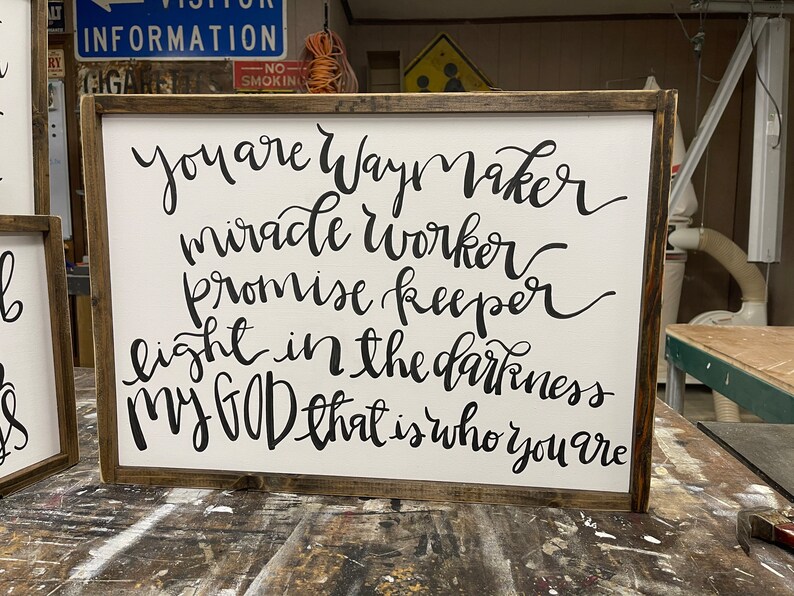 VISITOR
INFORMATION
CIGARETTES
NO
SMOKING
you are Way maker
miracle worker
promise keeper
light in the darkness
My GOD that is who you are